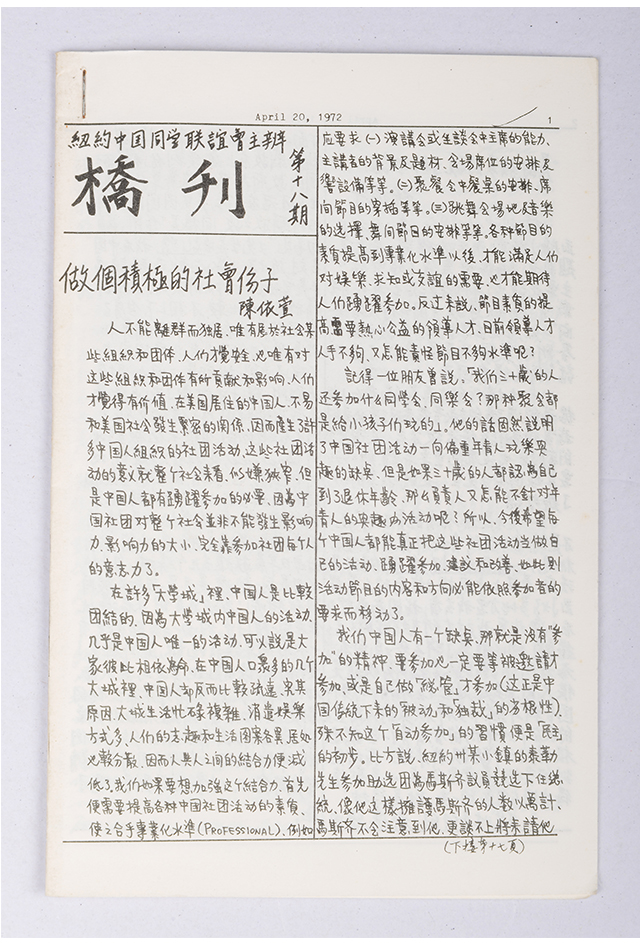 April 20, 1972
1
紐約中国同学联誼會主辦
橋刊
第十八期
做個積極的社會份子
陳依萱
人不能離群而独居、唯有居於社会某
些組织和团体、人们才覺安、也唯有对
这些組织和团体有所貢献和影响、人们
才覺得有价值、在美国居住的中国人、不易
和美国社会發生緊密的関係、因而產生了許
多中国人組织的社团活动、这些社团活
动的意义就整个社会来看、似嫌狹窄、但
是中国人都有踴躍参加的必要、因為中
国社团对整个社会並非不能發生影响
力、影响力的大小、完全靠参加社团每个人
的意志力了。
在許多「大學城」裡、中国人是比較
团結的、因為大學城内中国人的活动、
几乎是中国人唯一的活动、可以說是大
家彼此相依為命、在中国人口眾多的几个
大城裡、中国人却反而比較疏遠、究其
原因、大城生活忙碌複雜、消遣娱樂
方式多、人们的志趣和生活图案各異、居处
也較分散、因而人與人之间的結合力便減
低了、我们如果要想加強这个結合力、首先
便需要提高各种中国社团活动的素質、
使之合乎專業化水準(PROFESSIONAL)、例如
应要求(一)演講会或坐談会中主席的能力、
主講者的背景及題材、会場席位的安排及
響設備等等。(二)聚餐会中餐桌的安排、席
间節目的穿插等等。(三)跳舞会場地及音樂
的选擇、舞间節目的安排等等。各种節目的
素質提高到專業化水準以後、才能滿足人们
对娱樂、求知或交誼的需要、也才能期待
人们踴躍参加。反过来說、節目素質的提
高需要熱心公益的領導人才、目前領導人才
人手不夠、又怎能責怪節目不夠水準呢?
記得一位朋友曾說。「我们三十歲的人
还参加什么同学会、同樂会?那种聚会都
是給小孩子们玩的」。他的話固然說明
了中国社团活动一向偏重年青人玩樂興
趣的缺臭、但是如果三十歲的人都認為自己
到了退休年齡、那么負責人又怎能不針对年
青人的興趣办活动呢?所以、今後希望每
个中国人都能真正把这些社团活动当做自
己的活动、踴躍参加、建议和改善、如此則
活动節目的内容和方向必能依照参加者的
要求而移动了。
我们中国人有一个缺臭、那就是没有“参
加”的精神、要参加也一定要等被邀請才
参加、或是自己做「総管」才参加(这正是中
国传統下来的「被动」和「独裁」的劣根性)、
殊不知这个「自动参加」的習慣便是「民主」
的初步。比方說、紐約州某小鎮的泰勒
先生参加助选团為馬斯齐议員競选下任総
統、像他这樣擁護馬斯齐的人數以萬計、
馬斯齐不会注意到他、更談不上將来請他
(下接第十七頁)